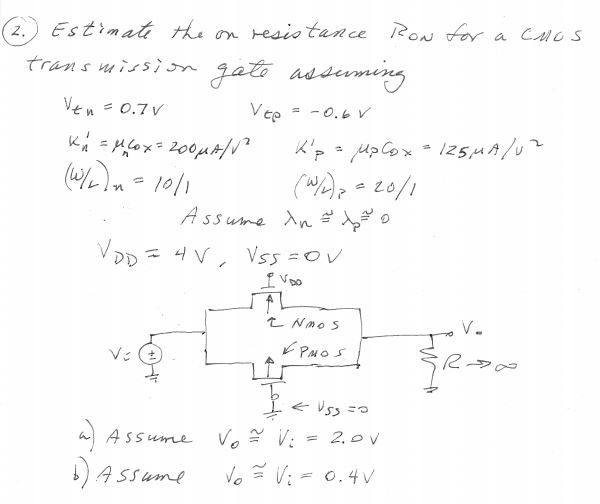 2.) Estimate the on resistance RON for a CMOS
transmission gate assuming
Vtn = 0.7V    Vtp = -0.6V
K'n = μnCox = 200μA/V²    K'p = μpCox = 125μA/V²
(W/L)n = 10/1    (W/L)p = 20/1
Assume λn ≅ λp ≅ 0
VDD = 4V, VSS = 0V
VDD
NMOS
Vo
PMOS
Vi
+
R → ∞
← VSS = 0
a) Assume Vo ≅ Vi = 2.0V
b) Assume Vo ≅ Vi = 0.4V